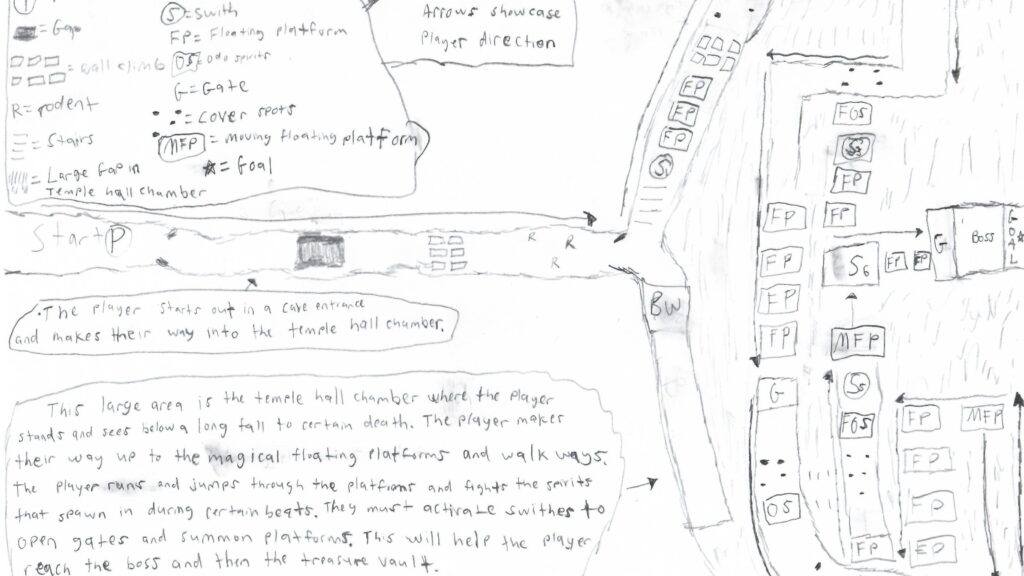 S = Swith
= Gap
FP = Floating platform
= wall climb
OS = Odo spirits
G = Gate
R = rodent
= cover spots
= Stairs
MFP = Moving floating platform
= Large Gap in
Temple hall chamber
= Goal
Arrows showcase
Player direction
Start P
R
R
R
•The player starts out in a cave entrance
and makes their way into the temple hall chamber.
This large area is the temple hall chamber where the player
stands and sees below a long fall to certain death. The player makes
their way up to the magical floating platforms and walk ways.
The player runs and jumps through the platfroms and fights the spirits
that spawn in during certain beats. They must activate swithes to
open gates and summon platforms. This will help the player
reach the boss and then the treasure vault.
FP
FP
FP
S1
BW
FOS
FP
FP
FP
FP
FP
FP
G
OS
S6
FP
FP
G
BOSS
GOAL
MFP
S5
FOS
FP
FP
MFP
FP
FP